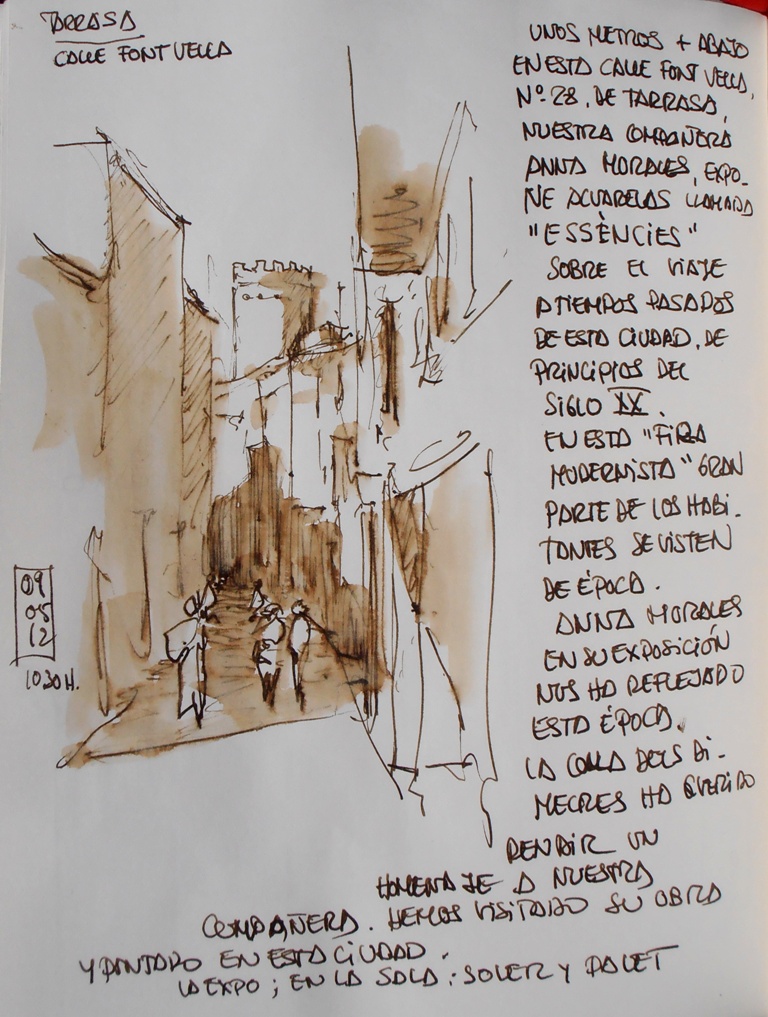 TARRASA
CALLE FONT VELLA
UNOS METROS + ABAJO
EN ESTA CALLE FONT VELLA,
Nº 28, DE TARRASA,
NUESTRA COMPAÑERA
ANNA MORALES, EXPO-
NE ACUARELAS LLAMADA
"ESSÈNCIES"
SOBRE EL VIAJE
A TIEMPOS PASADOS
DE ESTA CIUDAD, DE
PRINCIPIOS DEL
SIGLO XX.
EN ESTA "FIRA
MODERNISTA" GRAN
PARTE DE LOS HABI-
TANTES SE VISTEN
DE ÉPOCA.
ANNA MORALES
EN SU EXPOSICIÓN
NOS HA REFLEJADO
ESTA ÉPOCA.
LA COLLA DELS DI-
MECRES HA QUERIDO
RENDIR UN
HOMENAJE A NUESTRA
COMPAÑERA. HEMOS VISITADO SU OBRA
Y PINTADO EN ESTA CIUDAD.
LA EXPO; EN LA SALA: SOLER Y PALET
09
05
12
1030 H.